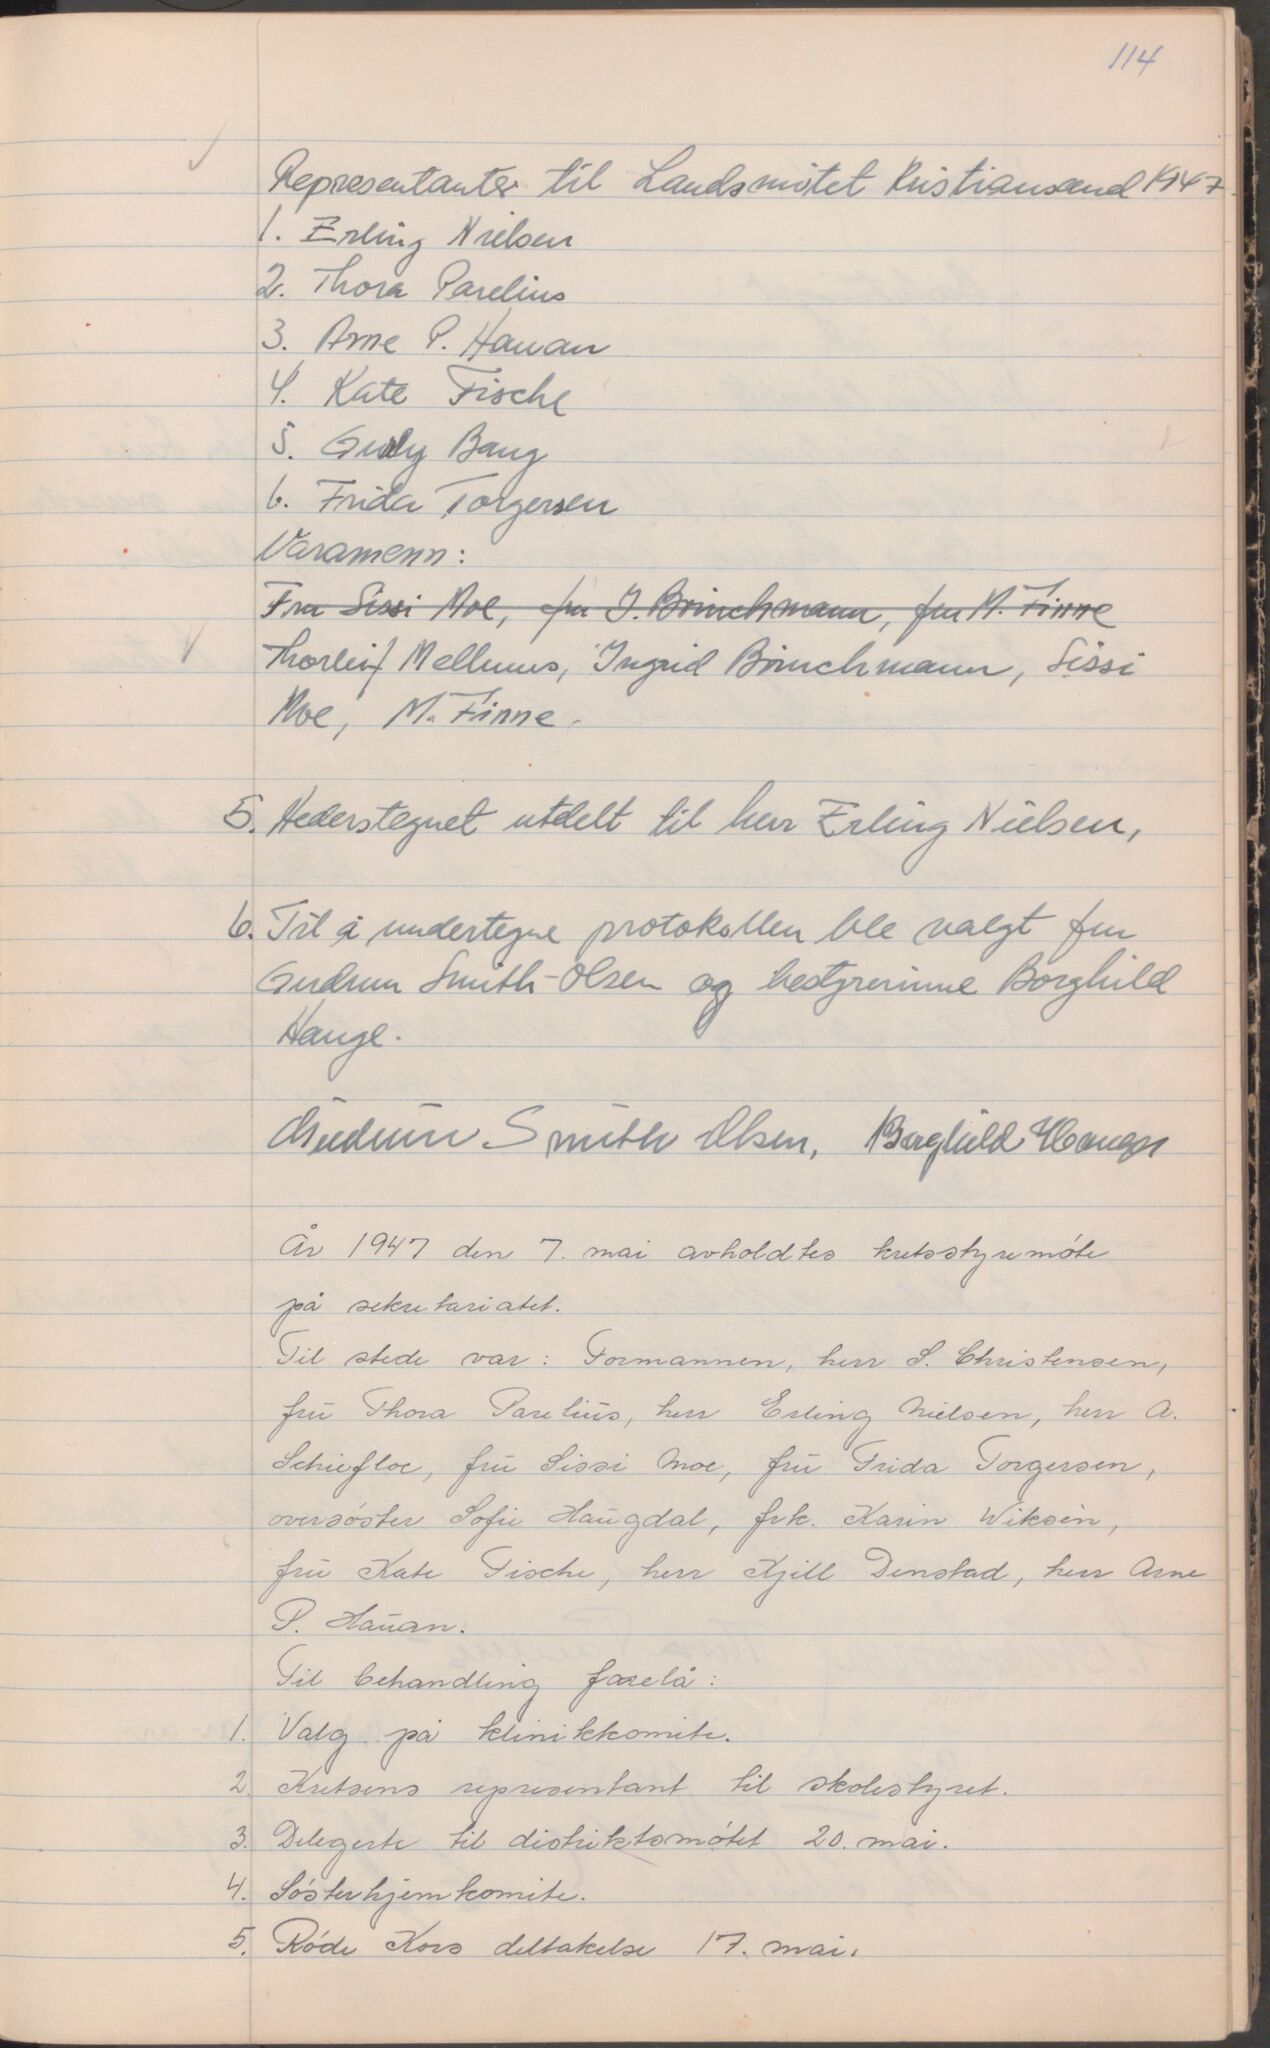 114
Representanter til Landsmötet Kristiansand 1947
1. Erling Nielsen
2. Thora Parelius
3. Arne P. Hauan
4. Kate Fische
5. Bang
6. Frida Torgersen
Varamenn:
Fru Sissi Moe, fru I. Brinchmann, fru M. Finne
Thorleif Mellnus, Ingrid Brinchmann, Sissi
Moe, M. Finne.
5. Hederstegnet utdelt til herr Erling Nielsen,
6. Til å undertegne protokollen ble valgt fru
Gudrun Smith-Olsen og bestyrerinne Borghild
Hauge.
Gudrun Smith Olsen, Borghild Hauge
År 1947 den 7. mai avholdtes kretsstyremöte
på sekretariatet.
Til stede var: Formannen, herr S. Christensen,
fru Thora Parelius, herr Erling Nielsen, herr A.
Schiefloe, fru Sissi Moe, fru Frida Torgersen,
oversöster Sofie Haugdal, frk. Karin Wiksén,
fru Kate Fische, herr Kjell Denstad, herr Arne
P. Hauan.
Til behandling forelå:
1. Valg på klinikkomite.
2. Kretsens representant til skolestyret.
3. Delegerte til distriktsmötet 20. mai.
4. Sösterhjemkomite.
5. Röde Kors deltakelse 17. mai.